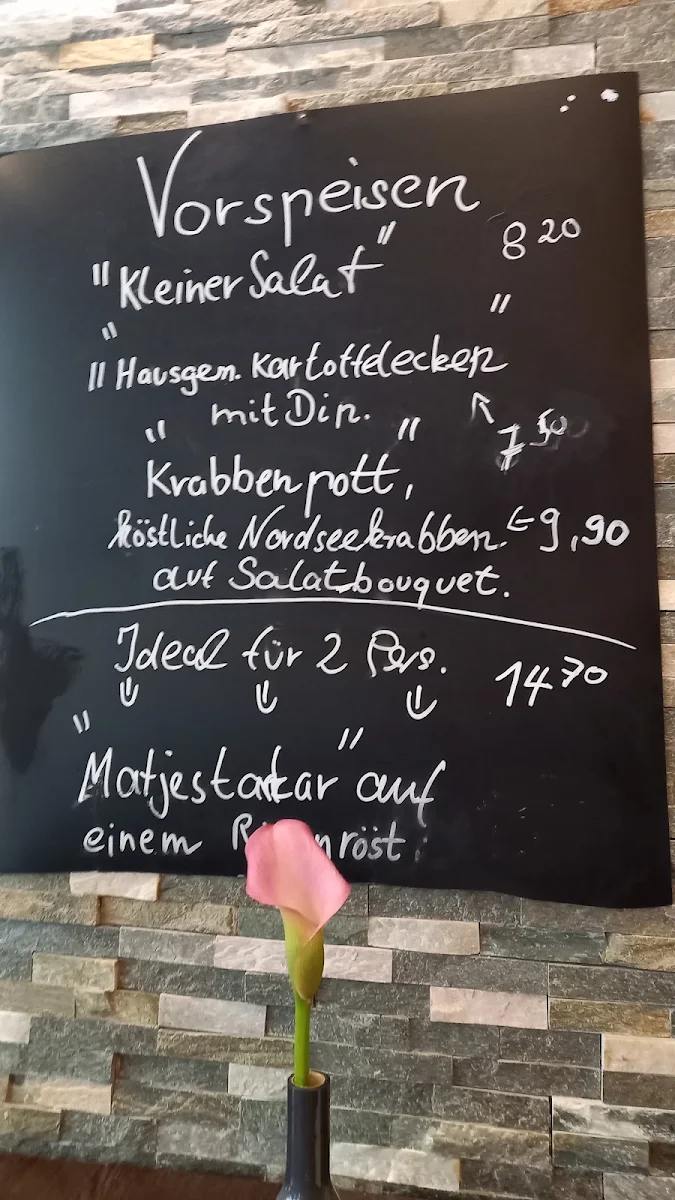 Vorspeisen
"Kleiner Salat" 8 20
" "
" Hausgem. Kartoffelecken
mit Dip. 7 50
" "
Krabbenpott,
köstliche Nordseekrabben. ← 9,90
auf Salatbouquet.
Ideal für 2 Pers. 14 70
"Matjestatar" auf
einem